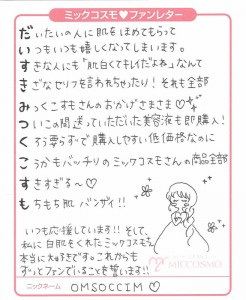 ミックコスモ♥ファンレター
だいたいの人に肌をほめてもらって
いつもいつも嬉しくなってしまいます。
すきな人にも「肌白くてキレイだよね」なんて
きざなセリフを言われちゃったり！それも全部
みっくこすもさんのおかげさまさま♡
つい この間送っていただいた美容液も即購入！
くろ要らずで購入しやすい低価格なのに
こうかもバッチリのミックコスモさんの商品全部
すきすぎる〜♡
もちもち肌バンザイ!!
いつも応援しています!! そして、
私に白肌をくれたミックコスモさん
本当に大好きです。これからも
ずっとファンでいることを誓います!!
MICCOSMO
ニックネーム OMSOCCIM ♡